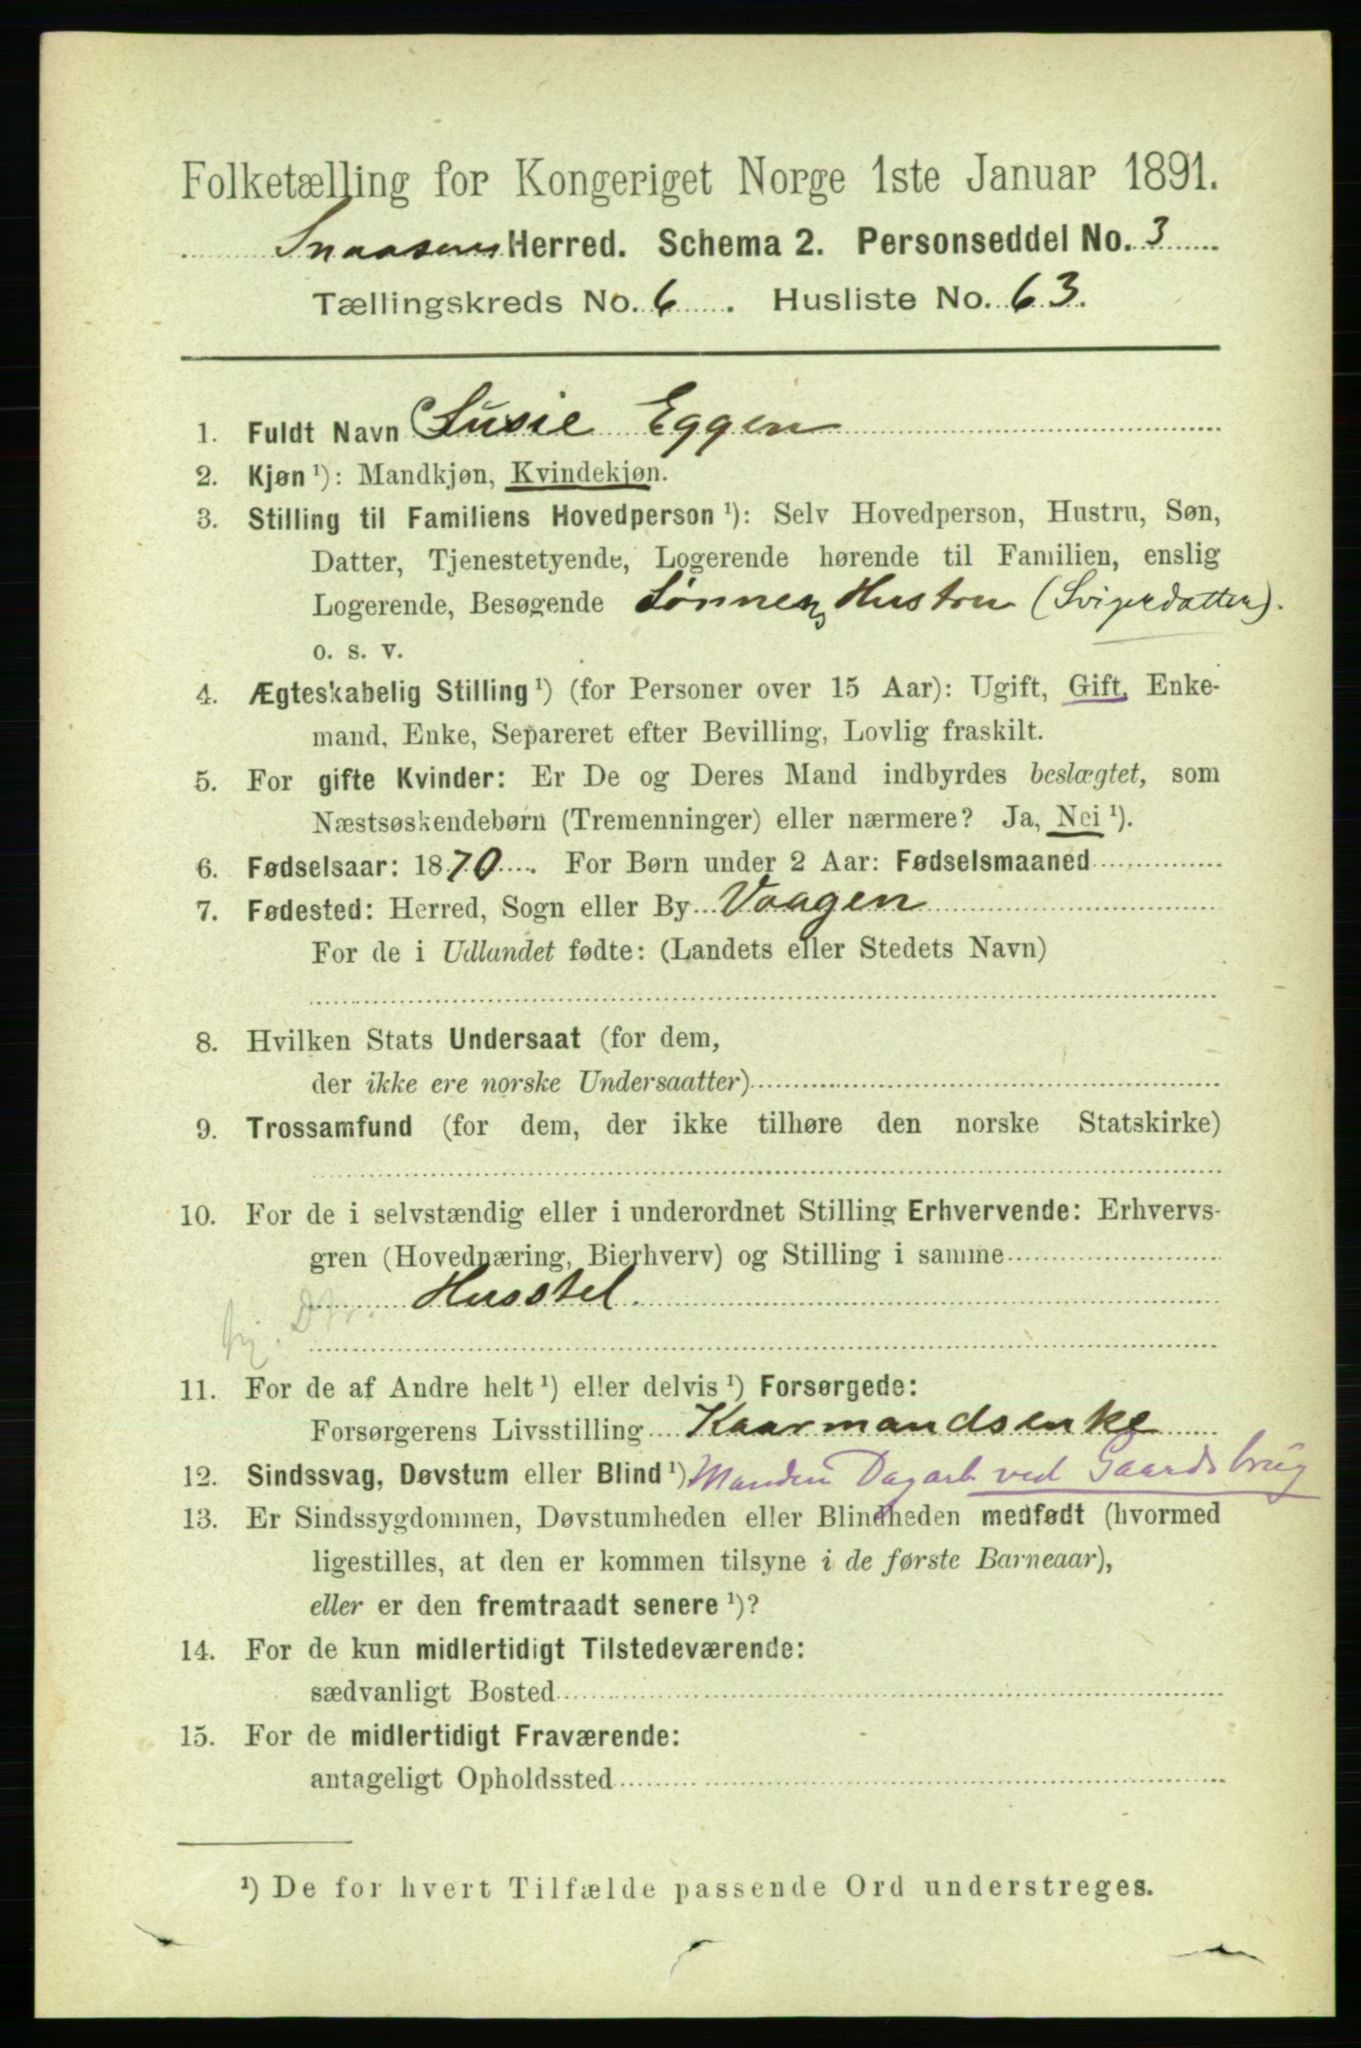 Folketælling for Kongeriget Norge 1ste Januar 1891.
Snaasen Herred. Schema 2. Personseddel No. 3
Tællingskreds No. 6. Husliste No. 63.
1. Fuldt Navn Susie Eggen
2. Kjøn ¹): Mandkjøn, Kvindekjøn.
3. Stilling til Familiens Hovedperson ¹): Selv Hovedperson, Hustru, Søn,
Datter, Tjenestetyende, Logerende hørende til Familien, enslig
Logerende, Besøgende Sønnens Hustru (Svigerdatter).
o. s. v.
4. Ægteskabelig Stilling ¹) (for Personer over 15 Aar): Ugift, Gift, Enke-
mand, Enke, Separeret efter Bevilling, Lovlig fraskilt.
5. For gifte Kvinder: Er De og Deres Mand indbyrdes beslægtet, som
Næstsøskendebørn (Tremenninger) eller nærmere? Ja, Nei ¹).
6. Fødselsaar: 1870. For Børn under 2 Aar: Fødselsmaaned
7. Fødested: Herred, Sogn eller By Vaagen
For de i Udlandet fødte: (Landets eller Stedets Navn)
8. Hvilken Stats Undersaat (for dem,
der ikke ere norske Undersaatter)
9. Trossamfund (for dem, der ikke tilhøre den norske Statskirke)
10. For de i selvstændig eller i underordnet Stilling Erhvervende: Erhvervs-
gren (Hovednæring, Bierhverv) og Stilling i samme
Husstel.
11. For de af Andre helt ¹) eller delvis ¹) Forsørgede:
Forsørgerens Livsstilling Kaarmandsenke
12. Sindssvag, Døvstum eller Blind ¹) Manden Dagarb. ved Gaardsbrug
13. Er Sindssygdommen, Døvstumheden eller Blindheden medfødt (hvormed
ligestilles, at den er kommen tilsyne i de første Barneaar),
eller er den fremtraadt senere ¹)?
14. For de kun midlertidigt Tilstedeværende:
sædvanligt Bosted
15. For de midlertidigt Fraværende:
antageligt Opholdssted
¹) De for hvert Tilfælde passende Ord understreges.